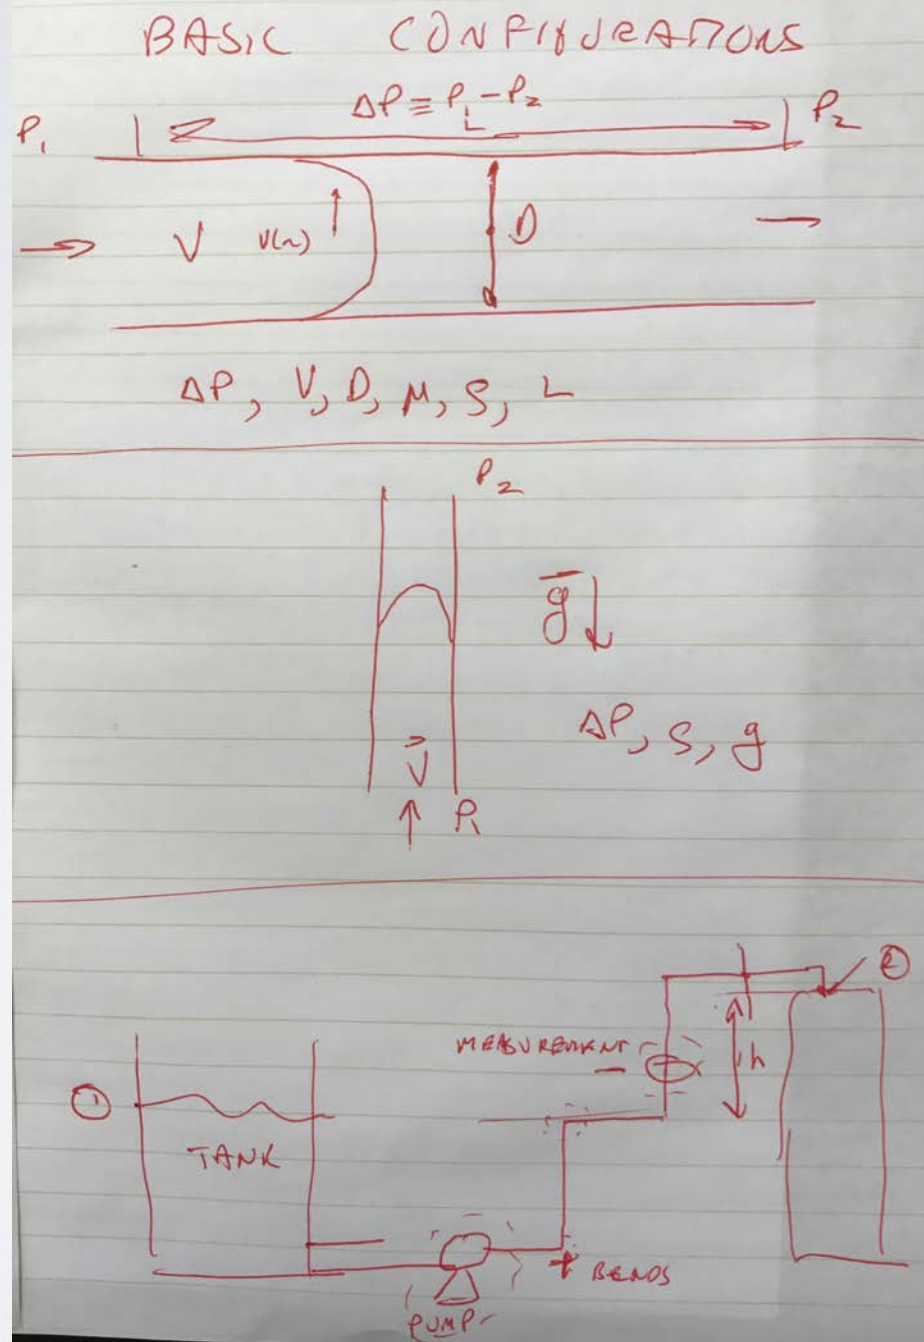 BASIC CONFIGURATIONS
ΔP ≡ P₁ - P₂
P₁
L
P₂
V
V(r)
D
ΔP, V, D, μ, ρ, L
P₂
g
ΔP, ρ, g
V
P₁
②
MEASUREMENT
h
①
TANK
BENDS
PUMP